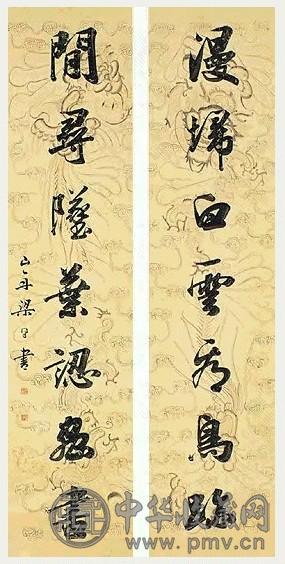 漫埽白雲看鳥跡
間尋墜葉認蟲書
山舟梁同書
中华收藏网
www.pmv.cn